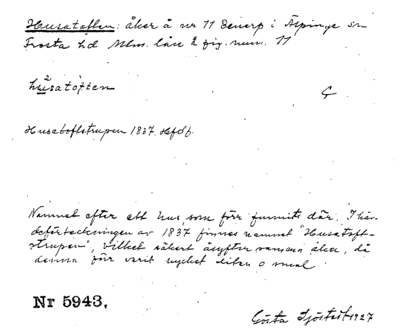 Husatoften: åker å nr 11 Denarp i Äspinge sn
Frosta hd Mlm. län 2 fig. num. 11
hu²satoften
Ç
Husatoftstrupen 1837 Hfdf.
Namnet efter ett hus, som förr funnits där. I hän-
deförteckningen av 1837 finnes namnet "Husatoft-
strupen", vilket säkert åsyftar samma åker, då
denna förr varit mycket liten o smal
Nr 5943.
Gösta Sjöstedt 1927